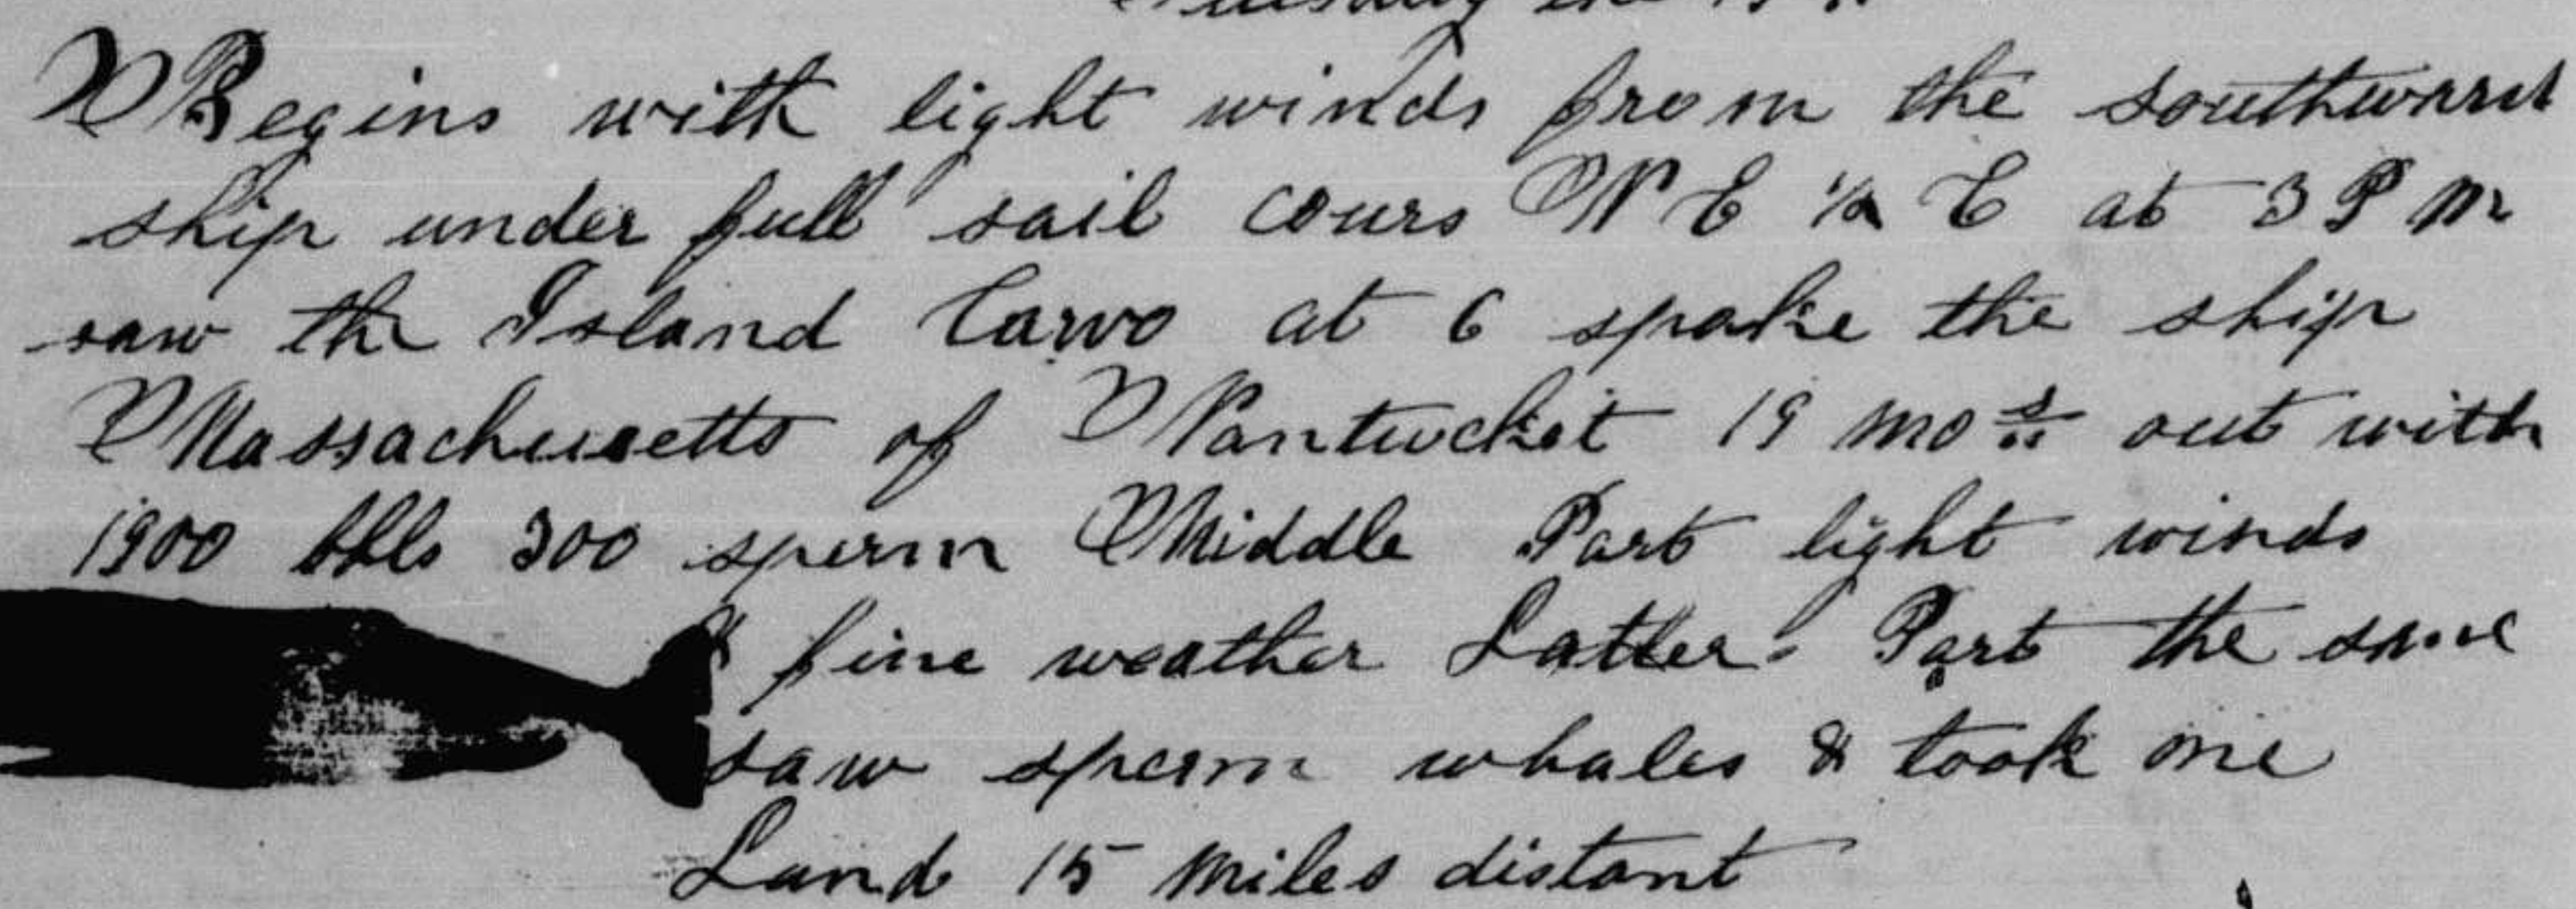 Tuesday the 19th
Begins with light winds from the southward
ship under full sail cours N E 1/2 E at 3 P M
saw the Island Corvo at 6 spake the ship
Massachusetts of Nantucket 19 mos out with
1900 bbls 300 sperm Middle Part light winds
& fine weather Latter Part the same
saw sperm whales & took one
Land 15 miles distant